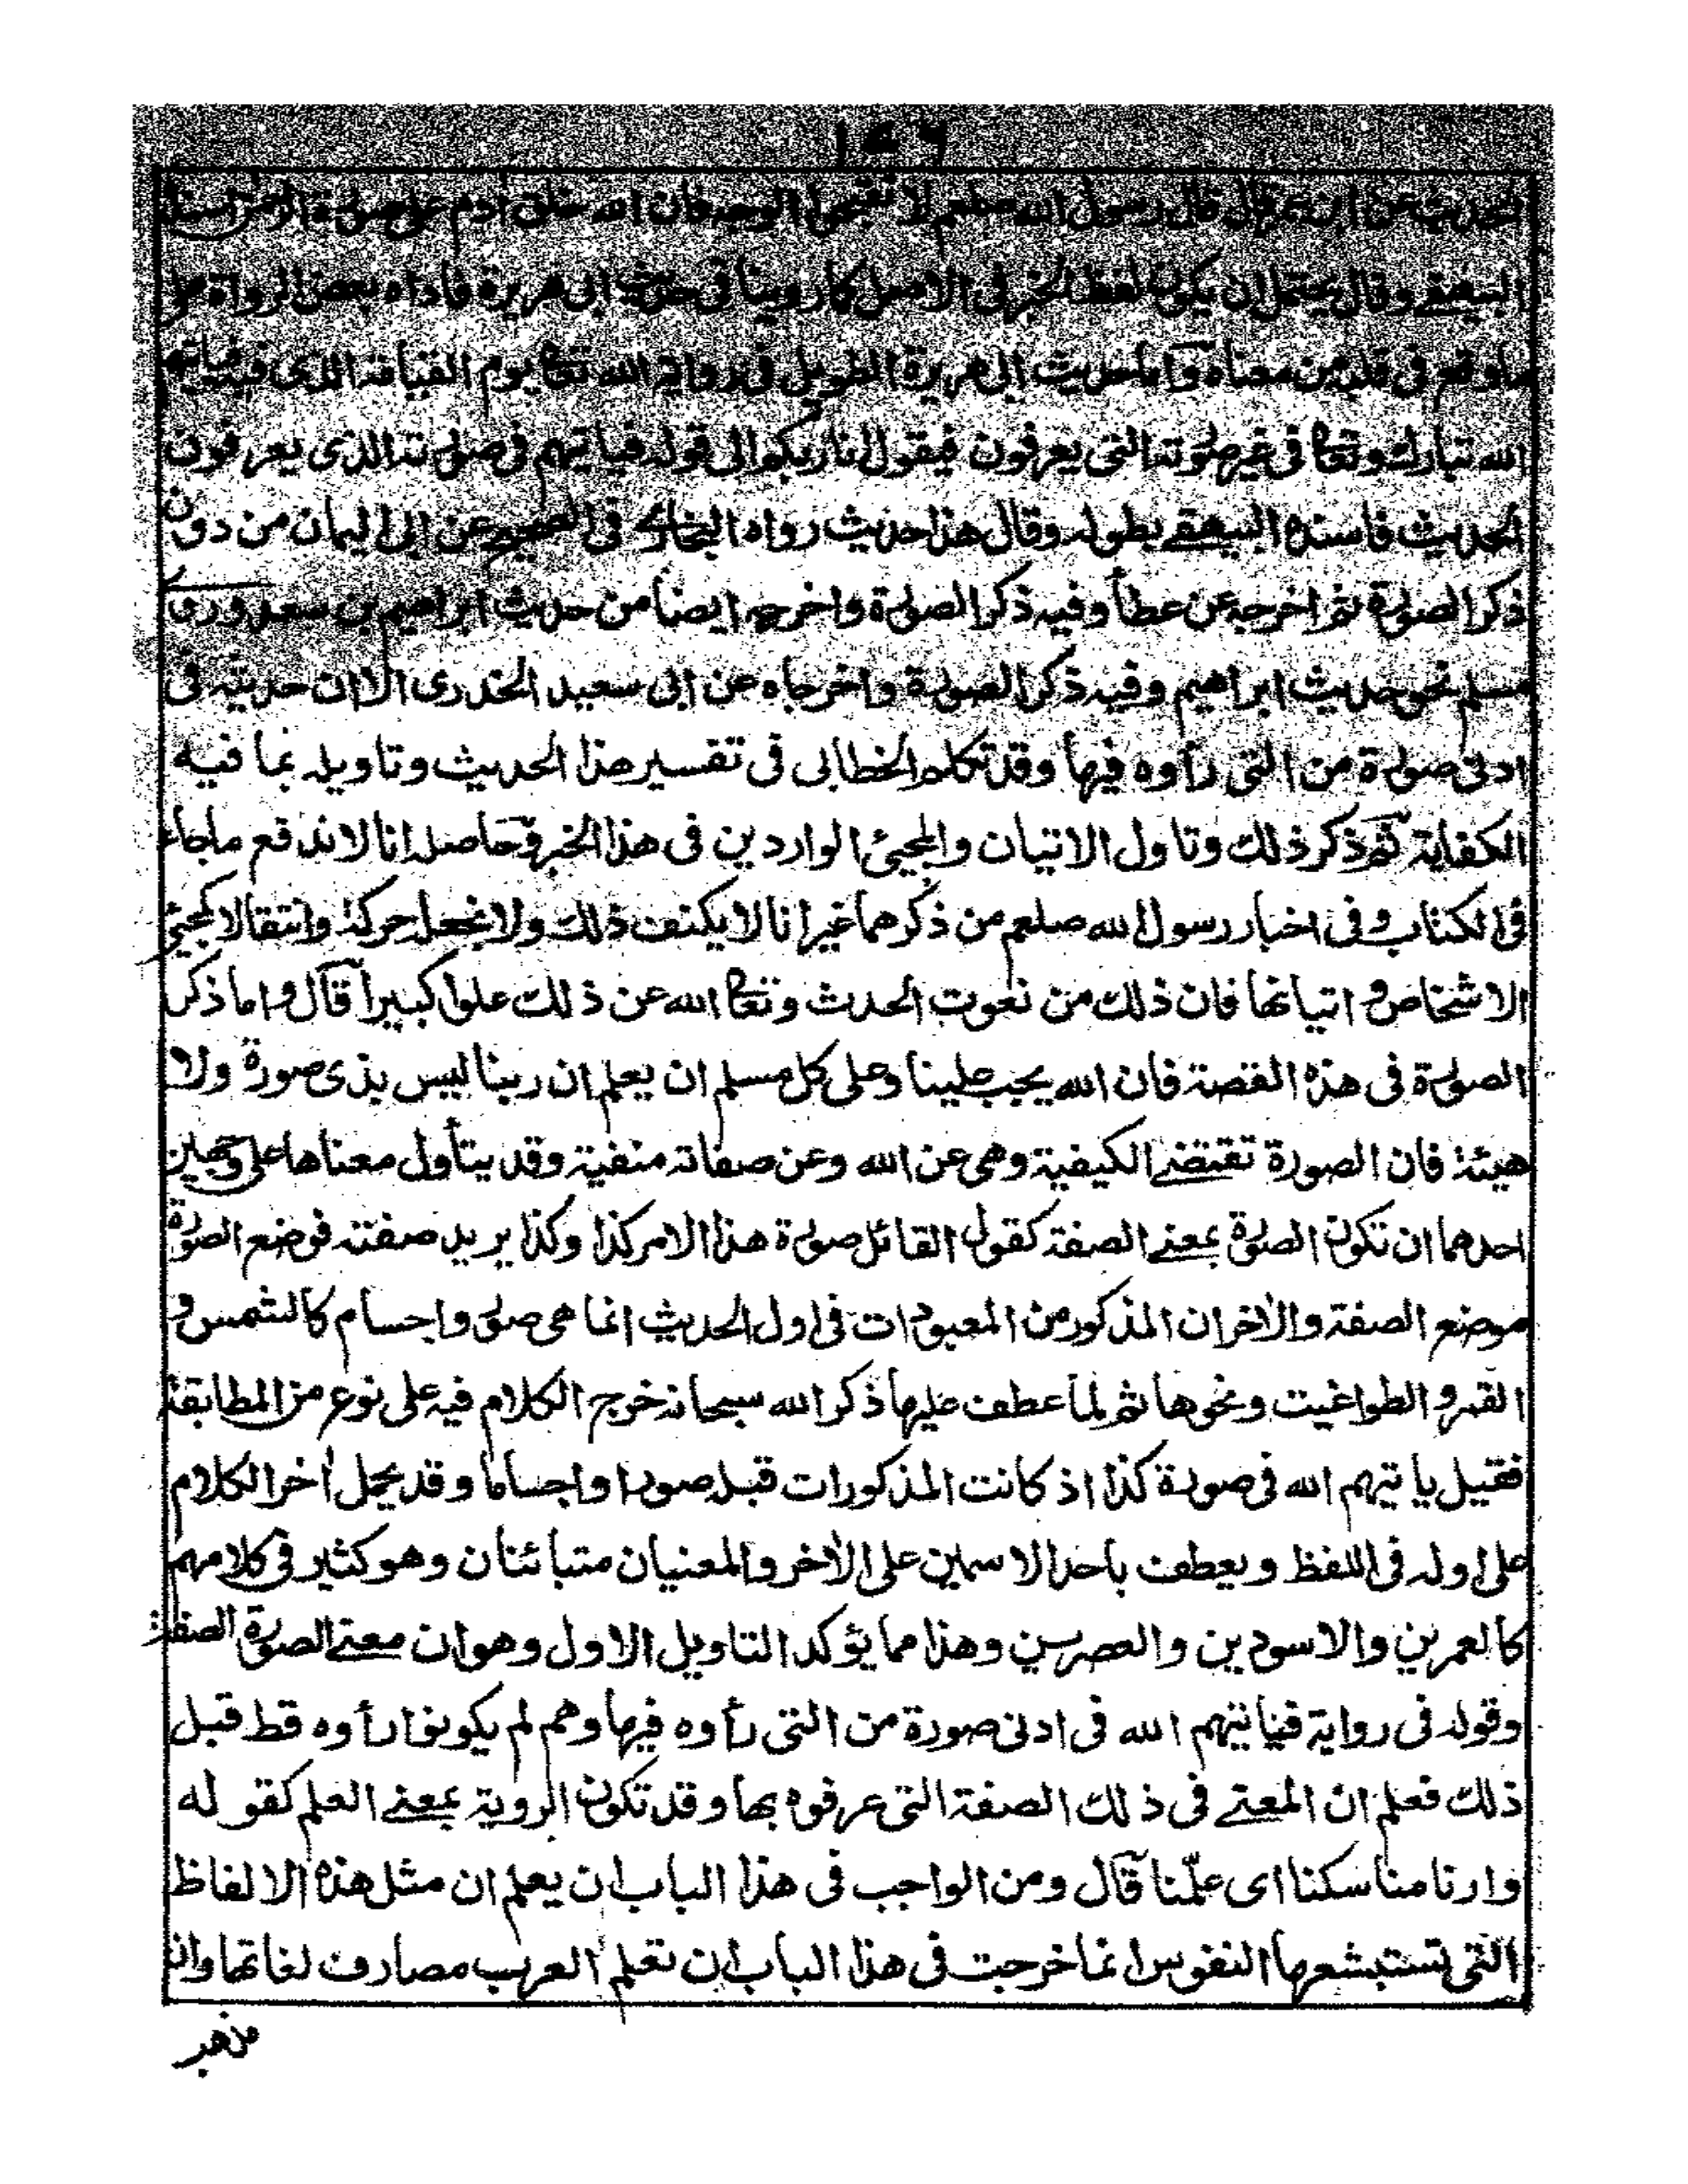 ١٤٦
الحديث عن ابن عمر قال قال رسول الله صلعم لا تقبحوا الوجه فان الله خلق ادم على صورة الرحمن اسنده
البيهقى وقال يحتمل ان يكون لفظ الخبر فى الاصل كما روينا فى حديث ابى هريرة فاداه بعض الرواة على
ما وقع فى قلبه من معناه واما حديث ابى هريرة الطويل فى رواية الله تعالى يوم القيامة الذى فيه فياتيهم
الله تبارك وتعالى فى غير صورته التى يعرفون فيقول انا ربكم الى قوله فياتيهم فى صورته الذى يعرفون
الحديث فاسنده البيهقى بطوله وقال هذا حديث رواه البخارى فى الصحيح عن ابى اليمان من دون
ذكر الصورة ثم اخرجه عن عطأ وفيه ذكر الصورة واخرجه ايضا من حديث ابراهيم بن سعد وروى
مسلم نحو حديث ابراهيم وفيه ذكر الصورة واخرجاه عن ابى سعيد الخدرى الا ان حديثه فى
ادنى صورة من التى رأوه فيها وقد تكلم الخطابى فى تفسير هذا الحديث وتاويله بما فيه
الكفاية ثم ذكر ذلك وتاول الاتيان والمجيئ الواردين فى هذا الخبر وحاصله انا لا ندفع ما جاء
فى الكتاب وفى اخبار رسول الله صلعم من ذكرهما غير انا لا يكنف ذلك ولا نجعل حركة وانتقالا كمجيئ
الاشخاص و اتيانها فان ذلك من نعوت الحدث وتعالى الله عن ذلك علوا كبيرا قال واما ذكر
الصورة فى هذه القصة فان الله يجب علينا وعلى كل مسلم ان يعلم ان ربنا ليس بذى صورة ولا
هيئة فان الصورة تقتضى الكيفية وهى عن الله وعن صفاته منفية وقد يتأول معناها على وجهين
احدهما ان تكون الصورة بمعنى الصفة كقول القائل صورة هذا الامر كذا وكذا يريد صفته فوضع الصورة
موضع الصفة والاخران المذكور من المعبودات فى اول الحديث انما هى صور واجسام كالشمس و
القمر و الطواغيت ونحوها ثم لما عطف عليها ذكر الله سبحانه خرج الكلام فيه على نوع من المطابقة
فقيل ياتيهم الله فى صورة كذا اذ كانت المذكورات قبله صورا واجساما وقد يحمل أخر الكلام
على اوله فى اللفظ ويعطف باحد الاسمين على الأخر والمعنيان متبائنان وهو كثير فى كلامهم
كالعمرين والاسودين والعصرين وهذا مما يؤكد التاويل الاول وهو ان معنى الصورة الصفة
وقوله فى رواية فياتيهم الله فى ادنى صورة من التى رأوه فيها وهم لم يكونوا رأوه قط قبل
ذلك فعلم ان المعنى فى ذلك الصفة التى عرفوه بها وقد تكون الروية بمعنى العلم كقوله
وارنا مناسكنا اى علّمنا قال ومن الواجب فى هذا الباب ان يعلم ان مثل هذه الالفاظ
التى تستبشعها النفوس انما خرجت فى هذا الباب ان تعلم العرب مصارف لغاتها وان